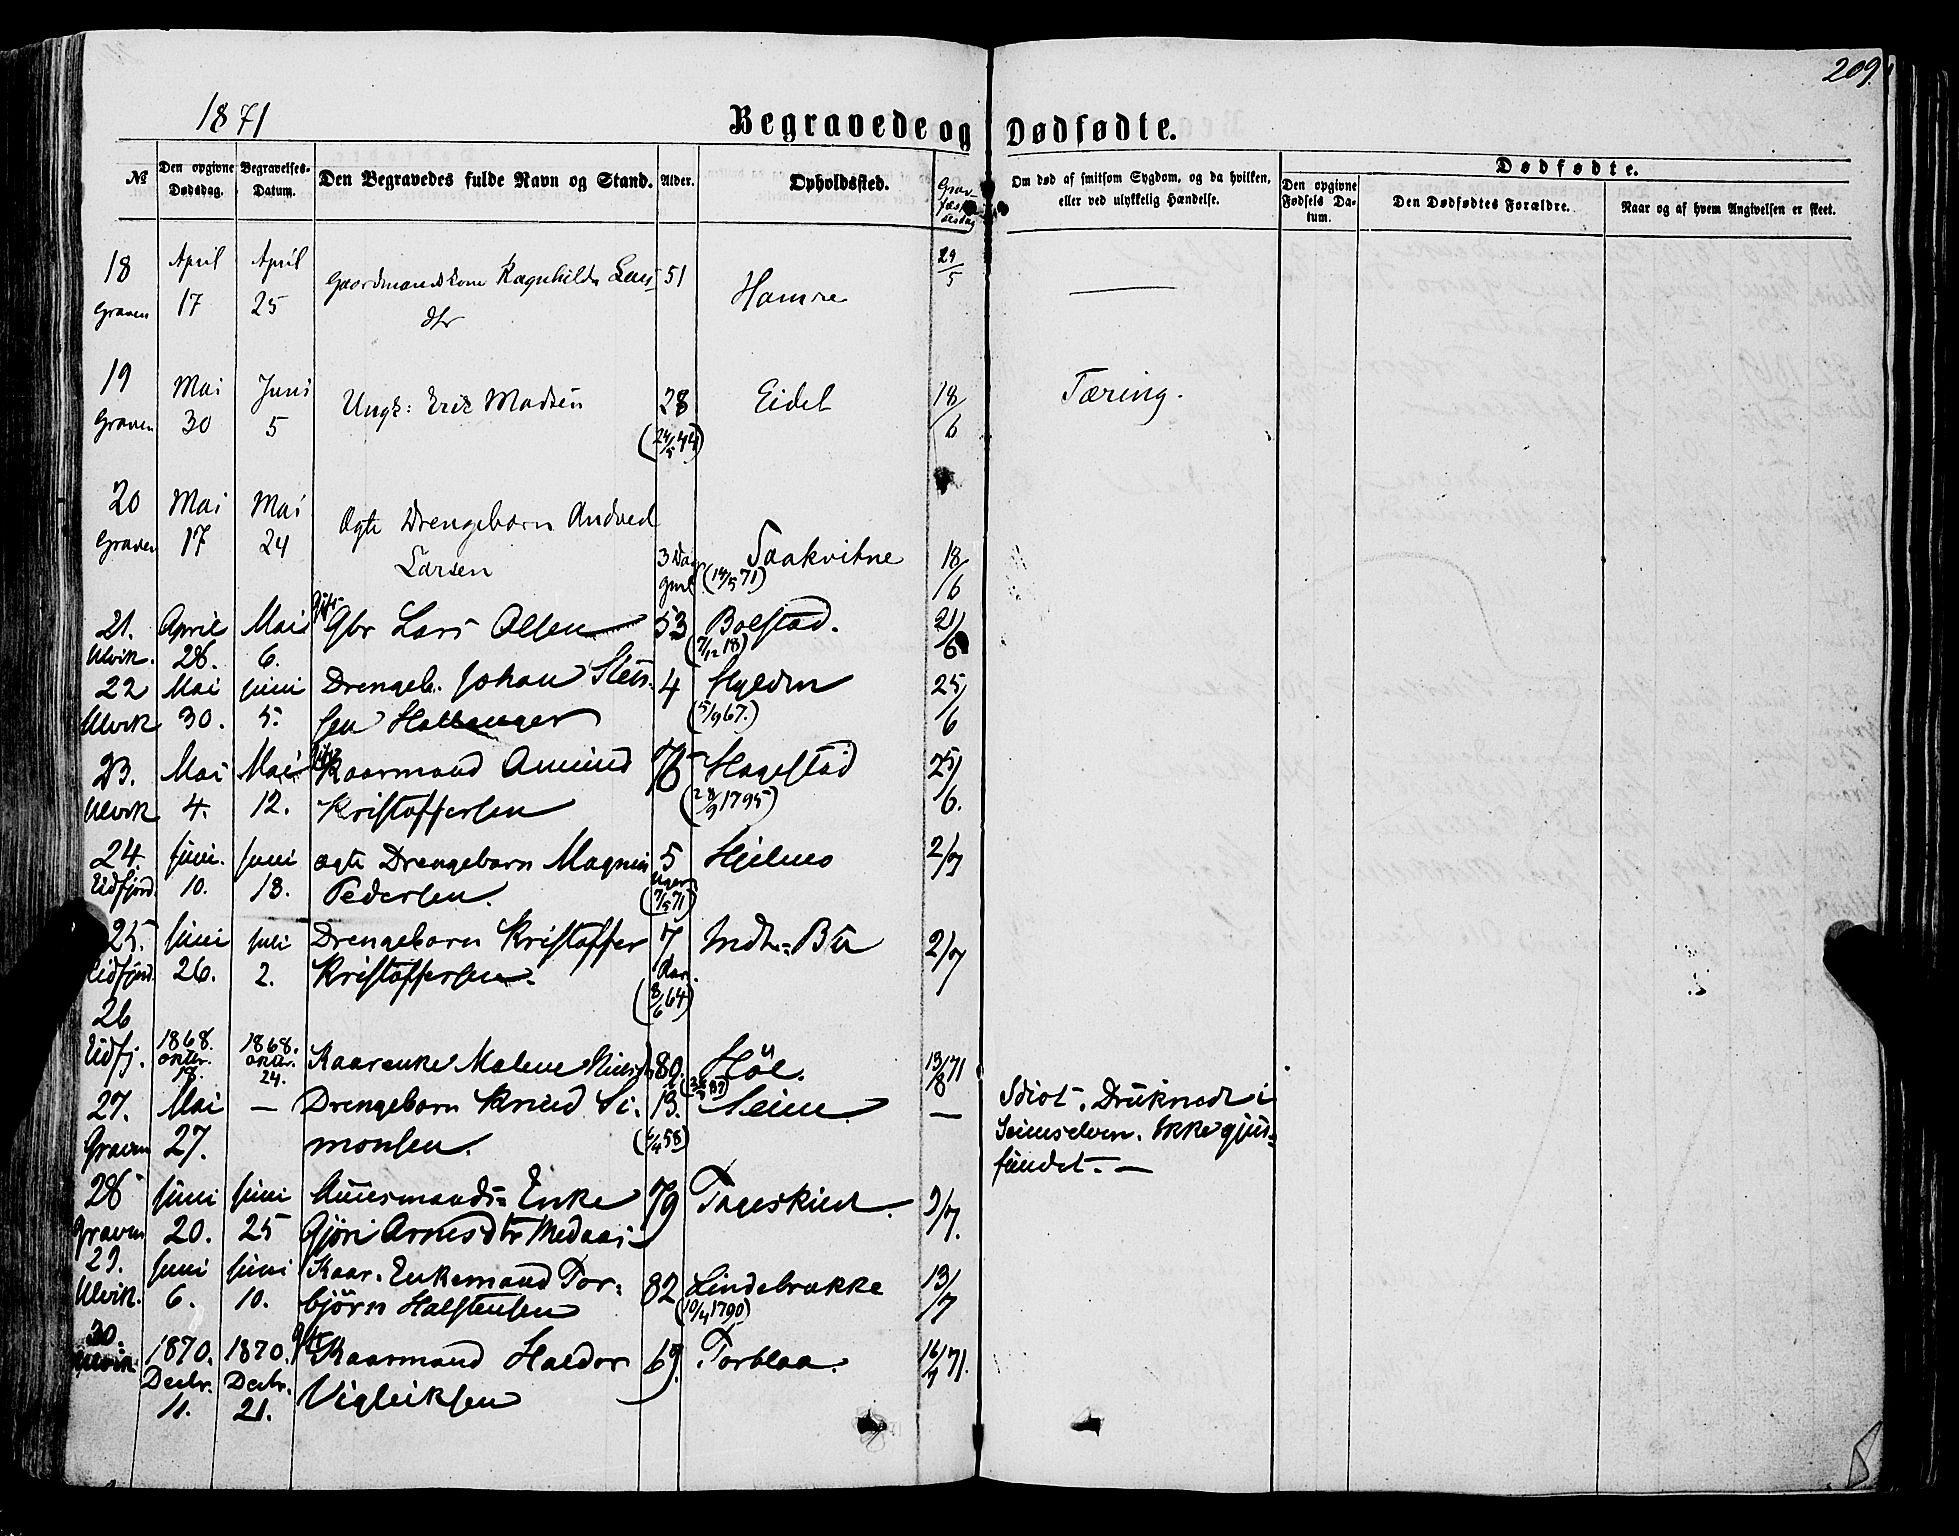 209.
1871
Begravede og Dødfødte.
№
Den opgivne Dødsdag.
Begravelses-Datum.
Den Begravedes fulde Navn og Stand.
Alder.
Opholdssted.
Om død af smitsom Sygdom, og da hvilken, eller ved ulykkelig Hændelse.
Dødfødte.
Den opgivne Fødsels Datum.
Den Dødfødtes Forældre.
Naar og af hvem Angivelsen er skeet.
18 April April Gaardmandskone Ragnhilda Lars 51 Hamre 29/5
Graven 17 25 dtr
19 Mai Juni Ungk: Erik Madsen 28 Eidet 18/6 Tæring.
Graven 30 5 (24/5 44)
20 Mai Mai Ægte Drengebarn Andved
Graven 17 24 Larsen 3 Dage gml (14/5 71) Saakvitne 18/6
21. April Mai Gift Gbr Lars Olsen 53 Bolstad. 21/6
Ulvik. 28. 6. (7/12 18)
22 Mai Juni Drengeb. Johan Sten- 4 Hylden 25/6
Ulvik 30. 5. sen Hallanger (5/9 67.)
23. Mai Mai Gift Kaarmand Amund 76 Hagestad 25/6.
Ulvik 4. 12. Kristoffersen (28/9 1795)
24. Juni. Juni ægte Drengebarn Magnus 5 Hjelmo 2/7
Eidfjord 10. 18. Pedersen. uger (7/5 71)
25. Juni Juli Drengebarn Kristoffer 7 Indre-Bu 2/7
Eidfjord 26. 2. Kristoffersen. Aar. (8/6 64)
26
Eidfj. 1868. Oktbr. 18. 1868. Oktbr. 24. Kaarenke Malene 80. Høl. 13/8 71
27. Mai — Drengebarn Knud Si- 13. Seim — Idiot. Druknede i
Graven 27. monsen. (6/4 58) Seimselven. Ikke gjen-
fundet. —
28 Juni Juni Huusmands-Enke 79 Tageskied. 9/7.
Graven 20. 25 Gjøri Arnesdtr Medaas
29. Juni Juni Kaar. Enkemand Tor- 82 Lindebrække 13/7
Ulvik. 6. 10. bjørn Halstensen (10/4 1790)
30. 1870. 1870. gift Kaarmand Haldor 67. Torblaa. 16/7 71.
Ulvik. Decbr. 11. Decbr. 21. Vigleiksen